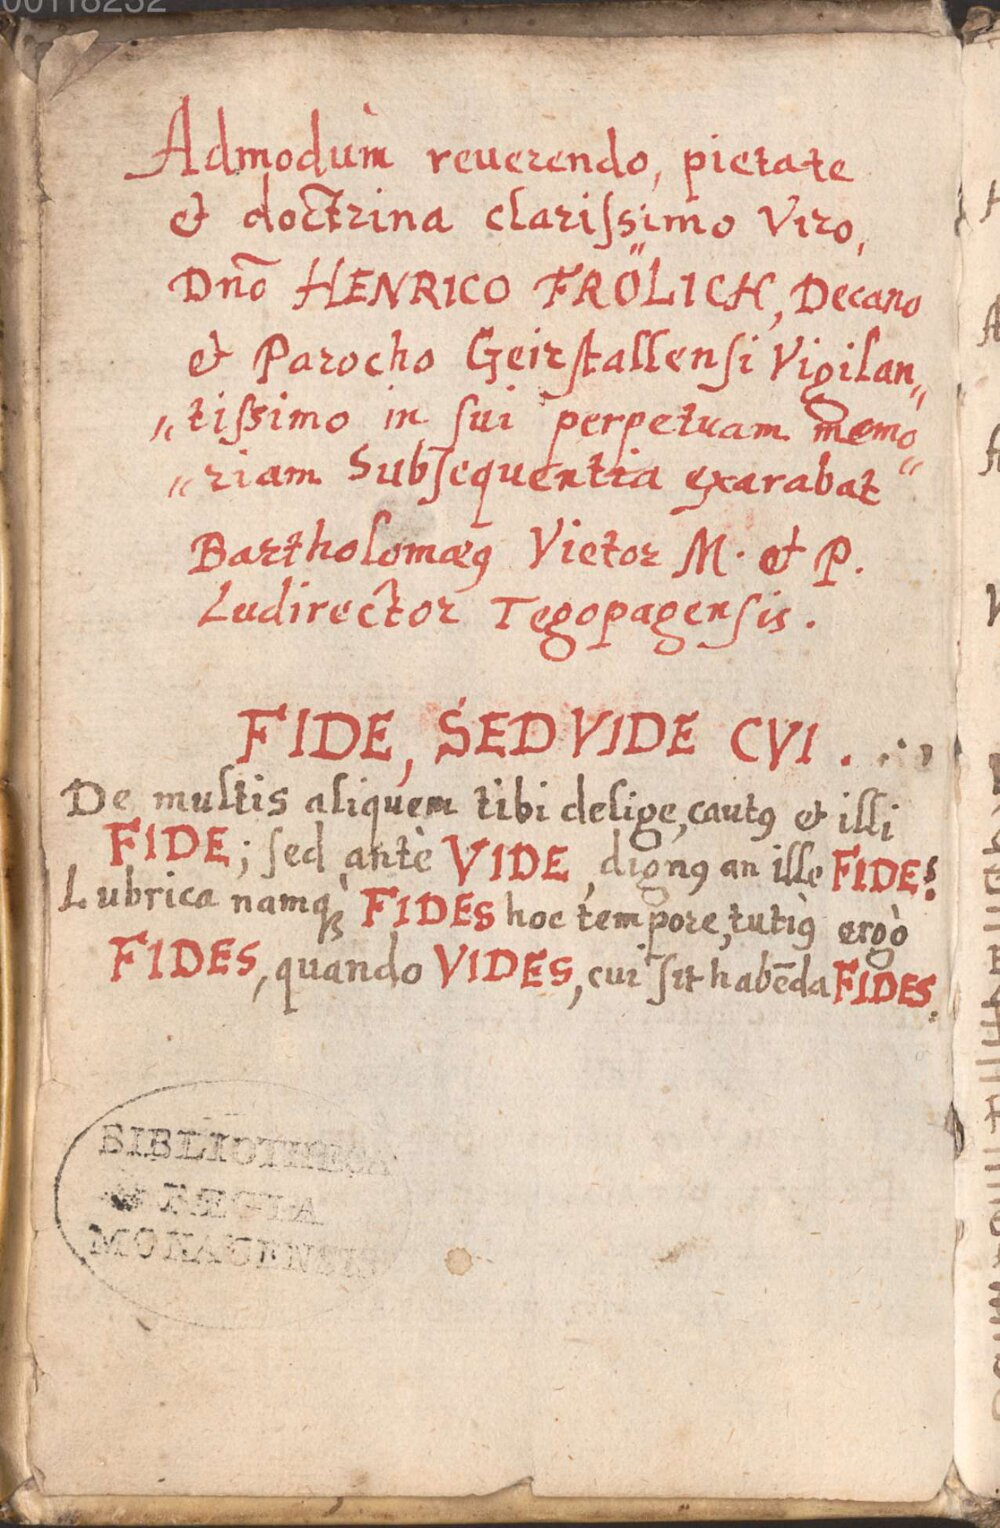 00118232
Admodùm reuerendo, pietate
et doctrina clariſsimo Viro,
Dnō HENRICO FRÖLICH, Decano
et Parocho Geirſtallenſi Vigilan„
„tiſsimo in ſui perpetuam memo„
„riam Subſequentia exarabat
Bartholomæꝯ Victor M. et P.
Ludirector Tegopagenſis.
FIDE, SED VIDE CVI.
De multis aliquem tibi delige, cautꝯ et illi
FIDE; ſed antè VIDE, dignꝯ an ille FIDE?
Lubrica namqꝫ FIDES hoc tempore, tutiꝯ ergò
FIDES, quando VIDES, cui ſit habēda FIDES.
BIBLIOTHECA
REGIA
MONACENSIS